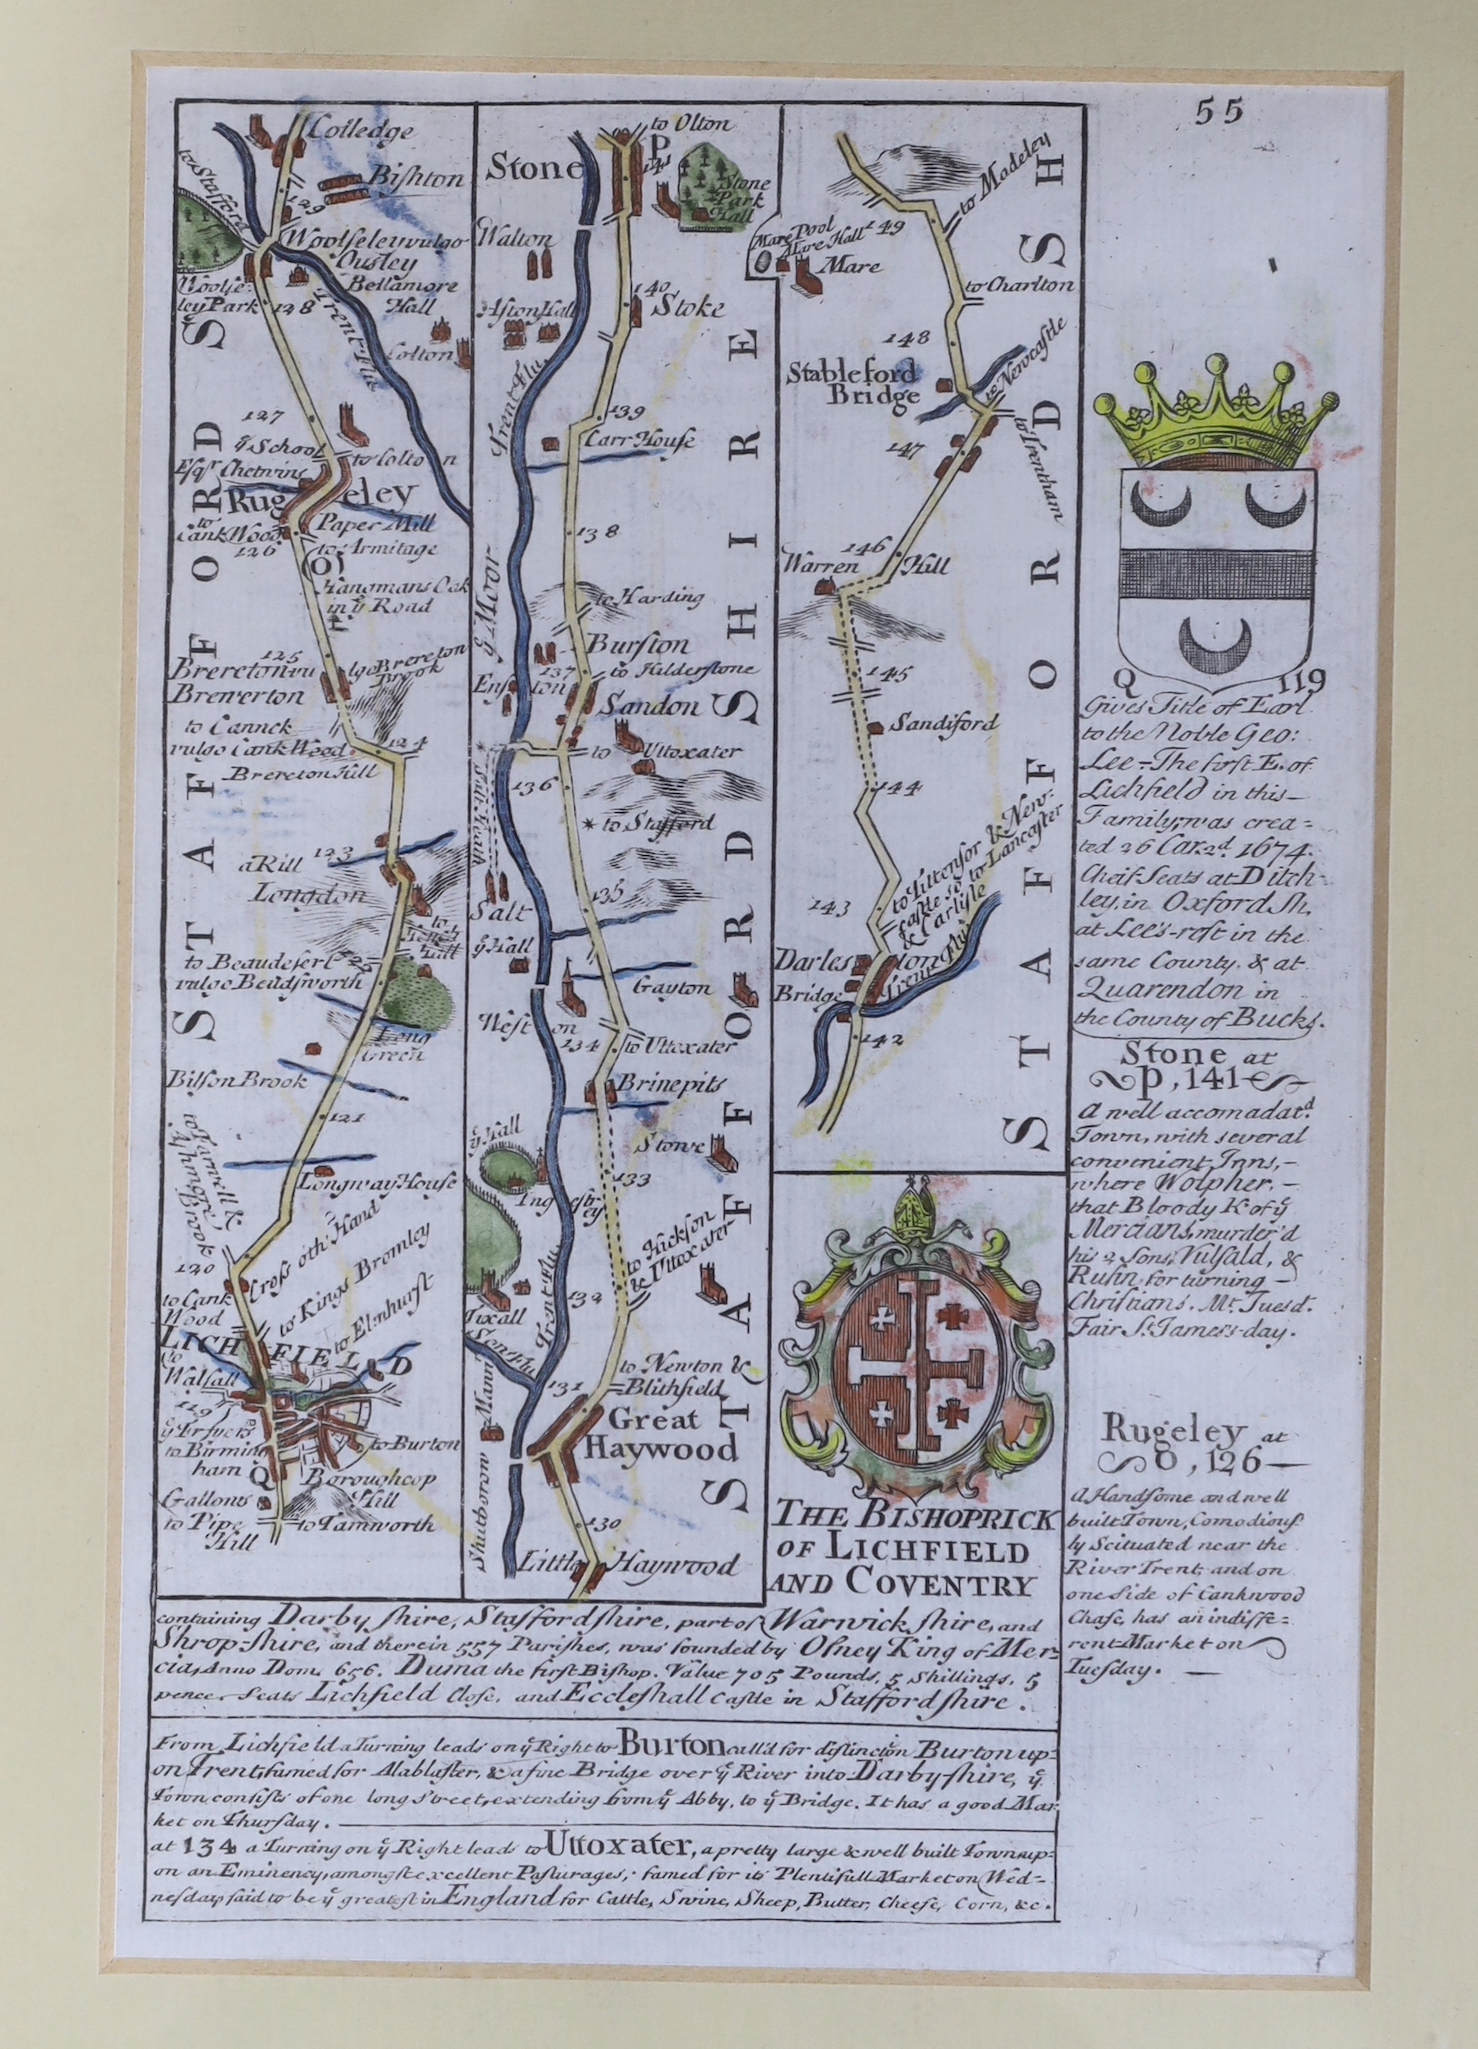 55
Colledge
to Stafford
Bishton
129
Woolseley vulgo
Ousley
Bellamore
Hall
Woolse-
ley Park
128
Trent Flu.
Colton
127
yͤ School
Esqʳ Chetwins
to Colton
Rugeley
to
Cank Wood
Paper Mill
126
to Armitage
(O)
Hangmans Oak
in yͤ Road
125
Brereton vulgo
Brewerton
Brereton
Brook
to Cannck
vulgo Cank Wood
124
Brereton Hill
a Rill
123
Longdon
to
Hall
to Beaudesert
122
vulgo Beudsworth
Long
Green
Bilson Brook
121
to Farwell &
Ashmore
Brook
Longway House
120
Cross oth' Hand
to Kings Bromley
to Elmhurst
to Cank
Wood
LICHFIELD
to
Walsall
119
to Birmin
ham
Q
to Burton
Boroughcop
Hill
Gallows
to Pipe
Hill
to Tamworth
STAFFORDS
Stone
to Olton
P
141
Stone
Park
Hall
Walton
140
Stoke
Aston Hall
Trent Flu.
139
Carr House
138
yͤ Moor
to Harding
Burston
137
to Hilderstone
Enston
Sandon
to Uttoxater
136
Salt Heath
to Stafford
135
Salt
yͤ Hall
Gayton
Weston
134
to Uttoxater
Brinepits
yͤ Hall
Stowe
133
Ingestrey
to Hickson
& Uttoxater
132
Tixall
Trent Flu.
Sow Flu.
to Newton &
Blithfield
131
Great
Haywood
Shutborow Mannr
130
Little Haywood
STAFFORDSHIRE
to Madeley
Mare Pool
Mare Hall
149
Mare
to Charlton
148
Stableford
Bridge
to Newcastle
147
to Trentham
146
Warren Hill
145
Sandiford
144
to Tittensor & New-
castle so to Lancaster
& Carlisle
143
Darleston
Bridge
Trent Flu.
142
STAFFORDSH
THE BISHOPRICK
OF LICHFIELD
AND COVENTRY
containing Darbyshire, Staffordshire, part of Warwickshire, and
Shrop-shire, and therein 557 Parishes, was founded by Osney King of Mer-
cia, Anno Dom. 656. Duma the first Bishop. Value 705 Pounds, 5 Shillings, 5
pence. Seats Lichfield Close, and Eccleshall Castle in Staffordshire.
From Lichfield a Turning leads on yͤ Right to Burton call'd for distinction Burton up-
on Trent, famed for Alablaster, & a fine Bridge over yͤ River into Darby-shire, yͤ
Town consists of one long street, extending from yͤ Abby, to yͤ Bridge. It has a good Mar
ket on Thursday.
at 134 a Turning on yͤ Right leads to Uttoxater, a pretty large & well built Town up-
on an Eminency, amongst excellent Pasturages; famed for its Plentifull Market on Wed-
nesday, said to be yͤ greatest in England for Cattle, Swine, Sheep, Butter, Cheese, Corn, &c.
Q 119
Gives Title of Earl
to the Noble Geo:
Lee. The first E. of
Lichfield in this
Family, was crea=
ted 26 Car. 2ᵈ. 1674.
Cheif Seats at Ditch-
ley, in Oxfordsh,
at Lee's-rest in the
same County, & at
Quarendon in
the County of Bucks.
Stone at
P, 141
A well accomadatᵈ
Town, with several
convenient Inns,
where Wolpher,
that Bloody K of yͤ
Mercians, murder'd
his 2 Sons, Vulfald, &
Rufin for turning
Christians. Mᵗ. Tuesᵈ.
Fair Sᵗ. James's-day.
Rugeley at
O, 126
A Handsome and well
built Town, Comodious-
ly Scituated near the
River Trent, and on
one side of Cankwood
Chase, has an indiffe=
rent Market on
Tuesday.